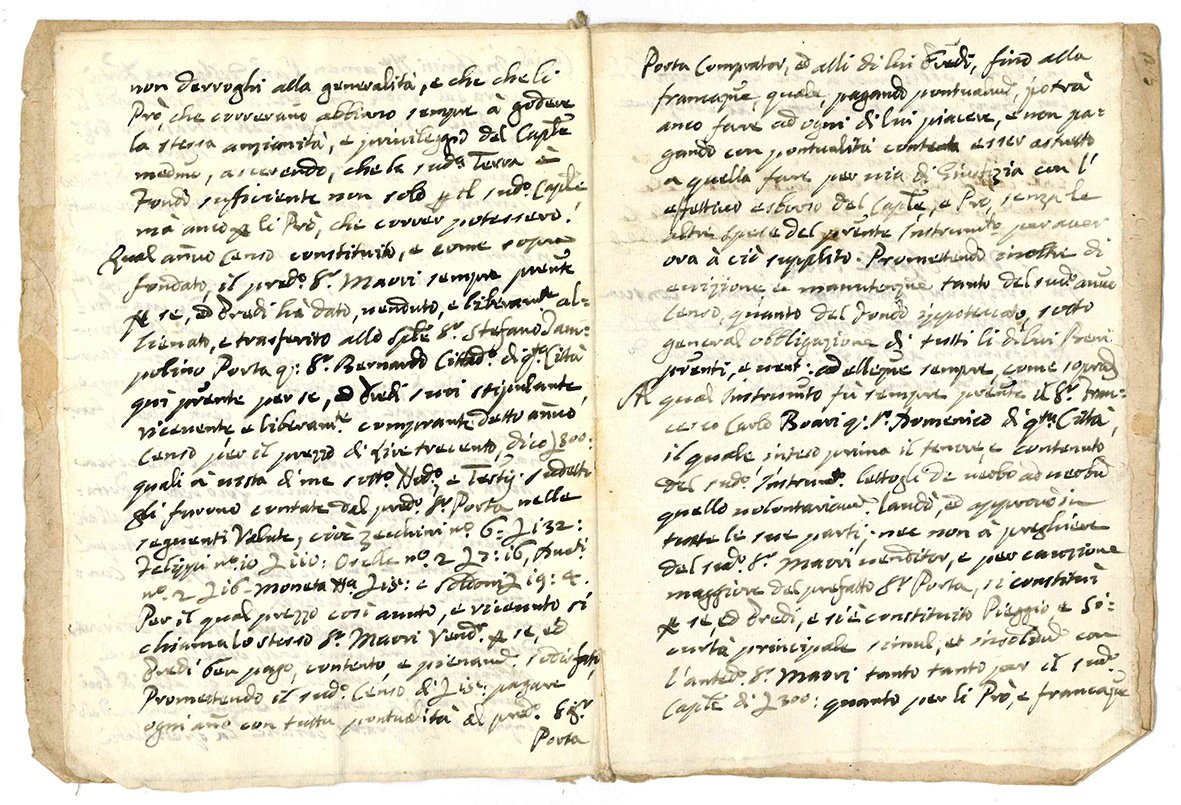 non derroghi alla generalità, e che che li
Prò, che correrano abbiano sempre à godere
la stessa anzianità, e privileggio del Caple
medmo, asserendo, che la sudª Terra è
Fondo sufficiente non solo p il sudº Caple
mà anco p li Prò, che correr potessero.
Qual annuo Censo constituito, e come sopra
fondato, il predº Sr Maori sempre prente
p se, ed Eredi hà dato, venduto, e liberamte al-
lienato, e trasferito allo Sr Stefano Jam-
polino Porta q: Sr Bernardo Cittadº di qta Città
qui prente per se, ed Eredi suoi stipulante
ricevente e liberamte comprante detto annuo
Censo per il prezzo di Lire trecento, dico 300:
quali à vista di me sottº Nodº e Testij sudetti
gli furono contate dal predº Sr Porta nelle
seguenti Valute, cioè Zecchini nº 6: L 132:
Filippi nº 10 L 110: Oselle nº 2 L 7: 16,
nº 2 L 16 - moneta L 15: e Soldoni L 19: 4.
Per il qual prezzo così avuto, e ricevuto si
chiama lo stesso Sr Maori Vendr p se, ed
Eredi ben pago, contento, e pienamte sodisfatto,
Promettendo il sudº Censo di L 15: pagare
ogni año con tutta pontualità al predº Sigr
Porta
Porta Comprator, ed alli di lui Eredi, fino alla
francaqne, quale, pagando pontualmte, potrà
anco fare ad ogni di lui piacere, e non pa-
gando con pontualità contenta esser astretto
a quella fare per via di Giustizia con l'
effettivo esborso del Caple, e Prò, senza le
altre spese del prente Instrumto per aver
ora à ciò supplito. Promettendo inoltre di
evizione, e manutenqne tanto del sudº annuo
Censo, quanto del Fondo ippotecato, sotto
general obbligazione di tutti li di lui Beni
prenti, e vent: ad elleqne sempre, come sopra
Al qual Instrumto fù sempre prente il Sr Fran-
cesco Carlo Boari q: Sr Domenico di qta Città,
il quale inteso prima il tenore e contenuto
del sudº Instrumto lettogli de verbo ad verbum
quello volontariamte laudò, ed approvò in
tutte le sue parti; nec non à preghiere
del sudº Sr Maori venditor, e per cauzione
maggiore del prefatto Sr Porta, si constituì
p se, ed Eredi, e si è constituito Pieggio e Si-
curtà principale simul, et insolidum con
l'antedº Sr Maori tanto tanto per il sudº
Caple di L 300: quanto per li Prò, e francaqne